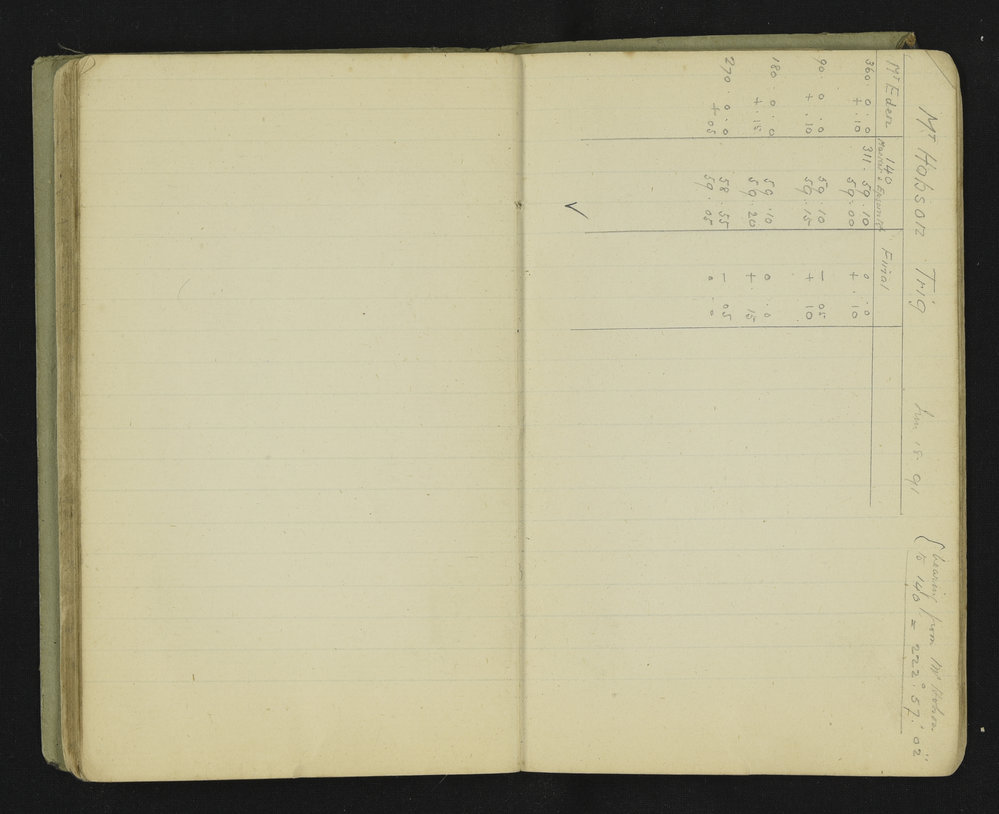 Mt Hobson Trig Jun 18. 91 { bearing from Mt Hobson
to 140 = 222° 57' 02"
Mt Eden 140 Final
360. 0. 0 311. 59. 10 0. 0
+. 10 59. 00 +. 10
90. 0. 0 59. 10 - 05
+. 10 59. 15 + 10
180. 0. 0 59. 10 0. 0
+. 15 59. 20 +. 15
270. 0. 0 58. 55 - 05
+ 05 59. 05 0. 0
✓